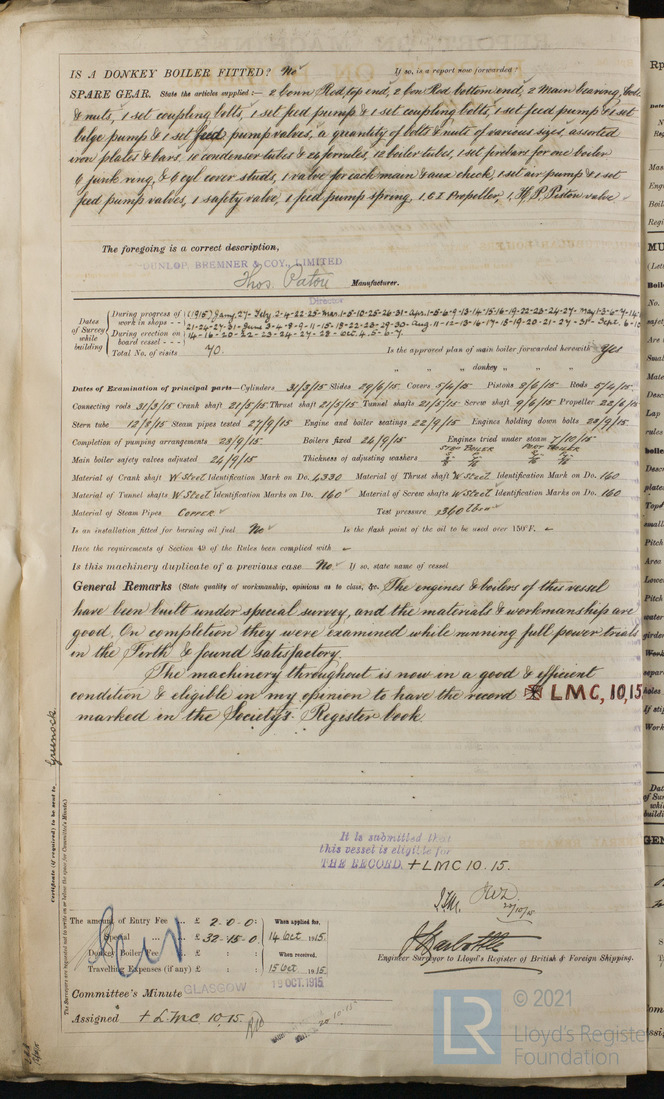 IS A DONKEY BOILER FITTED? No If so, is a report now forwarded?
SPARE GEAR. State the articles supplied:— 2 conn Rod top end, 2 con Rod bottom end, 2 Main bearing, bolts
& nuts, 1 set coupling bolts, 1 set feed pump & 1 set coupling bolts, 1 set feed pump & 1 set
bilge pump & 1 set feed pump valves, a quantity of bolts & nuts of various sizes, assorted
iron plates & bars, 10 condenser tubes & 24 ferrules, 12 boiler tubes, 1 set firebars for one boiler
6 junk ring, & 6 cyl cover studs, 1 valve for each main & aux check, 1 set air pump & 1 set
feed pump valves, 1 safety valve, 1 feed pump spring, 1 C I Propeller, 1 H.P. Piston valve
The foregoing is a correct description,
DUNLOP, BREMNER & COY., LIMITED
Thos. Paton Manufacturer.
Director
Dates of Survey while building
During progress of work in shops - - (1915) Jany. 27 - Feby. 2-4-22-25 Mar. 1-5-10-25-26-31 - Apr. 1-5-6-9-13-14-15-16-19-22-23-24-27- May 1-3-6-7-14-
During erection on board vessel - - - 21-24-27-31- June 3-4-8-9-11-15-18-22-23-29-30- Aug. 11-12-13-16-17-18-19-20-21-27-31- Sept. 6-13
14-16-20-22-23-24-27-28- Oct. 4-5-6-7.
Total No. of visits 70. Is the approved plan of main boiler forwarded herewith Yes
" " " donkey " " "
Dates of Examination of principal parts—Cylinders 31/3/15 Slides 29/6/15 Covers 5/4/15 Pistons 9/6/15 Rods 5/4/15
Connecting rods 31/3/15 Crank shaft 21/5/15 Thrust shaft 21/5/15 Tunnel shafts 21/5/15 Screw shaft 9/6/15 Propeller 22/6/15
Stern tube 12/8/15 Steam pipes tested 27/9/15 Engine and boiler seatings 22/9/15 Engines holding down bolts 23/9/15
Completion of pumping arrangements 23/9/15 Boilers fixed 24/9/15 Engines tried under steam 7/10/15
Main boiler safety valves adjusted 24/9/15 Thickness of adjusting washers STBD BOILER PORT BOILER
Material of Crank shaft W Steel Identification Mark on Do. 4330 Material of Thrust shaft W Steel Identification Mark on Do. 160
Material of Tunnel shafts W Steel Identification Marks on Do. 160 Material of Screw shafts W Steel Identification Marks on Do. 160
Material of Steam Pipes Copper Test pressure 360 lbs
Is an installation fitted for burning oil fuel No Is the flash point of the oil to be used over 150°F.
Have the requirements of Section 49 of the Rules been complied with
Is this machinery duplicate of a previous case No If so, state name of vessel
General Remarks (State quality of workmanship, opinions as to class, &c. The engines & boilers of this vessel
have been built under special survey, and the materials & workmanship are
good. On completion they were examined while running full power trials
in the Firth & found satisfactory.
The machinery throughout is now in a good & efficient
condition & eligible in my opinion to have the record LMC, 10,15
marked in the Society's Register book
Certificate (if required) to be sent to Greenock.
(The Surveyors are requested not to write on or below the space for Committee's Minute.)
It is submitted that
this vessel is eligible for
THE RECORD. + LMC 10.15.
27/10/15
The amount of Entry Fee .. £ 2-0-0: When applied for,
Special .. £ 32-15-0: 14 Oct 1915.
Donkey Boiler Fee .. £ : : When received,
Travelling Expenses (if any) £ : : 15 Oct 1915
Engineer Surveyor to Lloyd's Register of British & Foreign Shipping.
Committee's Minute GLASGOW 19 OCT. 1915
Assigned + LMC 10.15.
LR © 2021
Lloyd's Register
Foundation